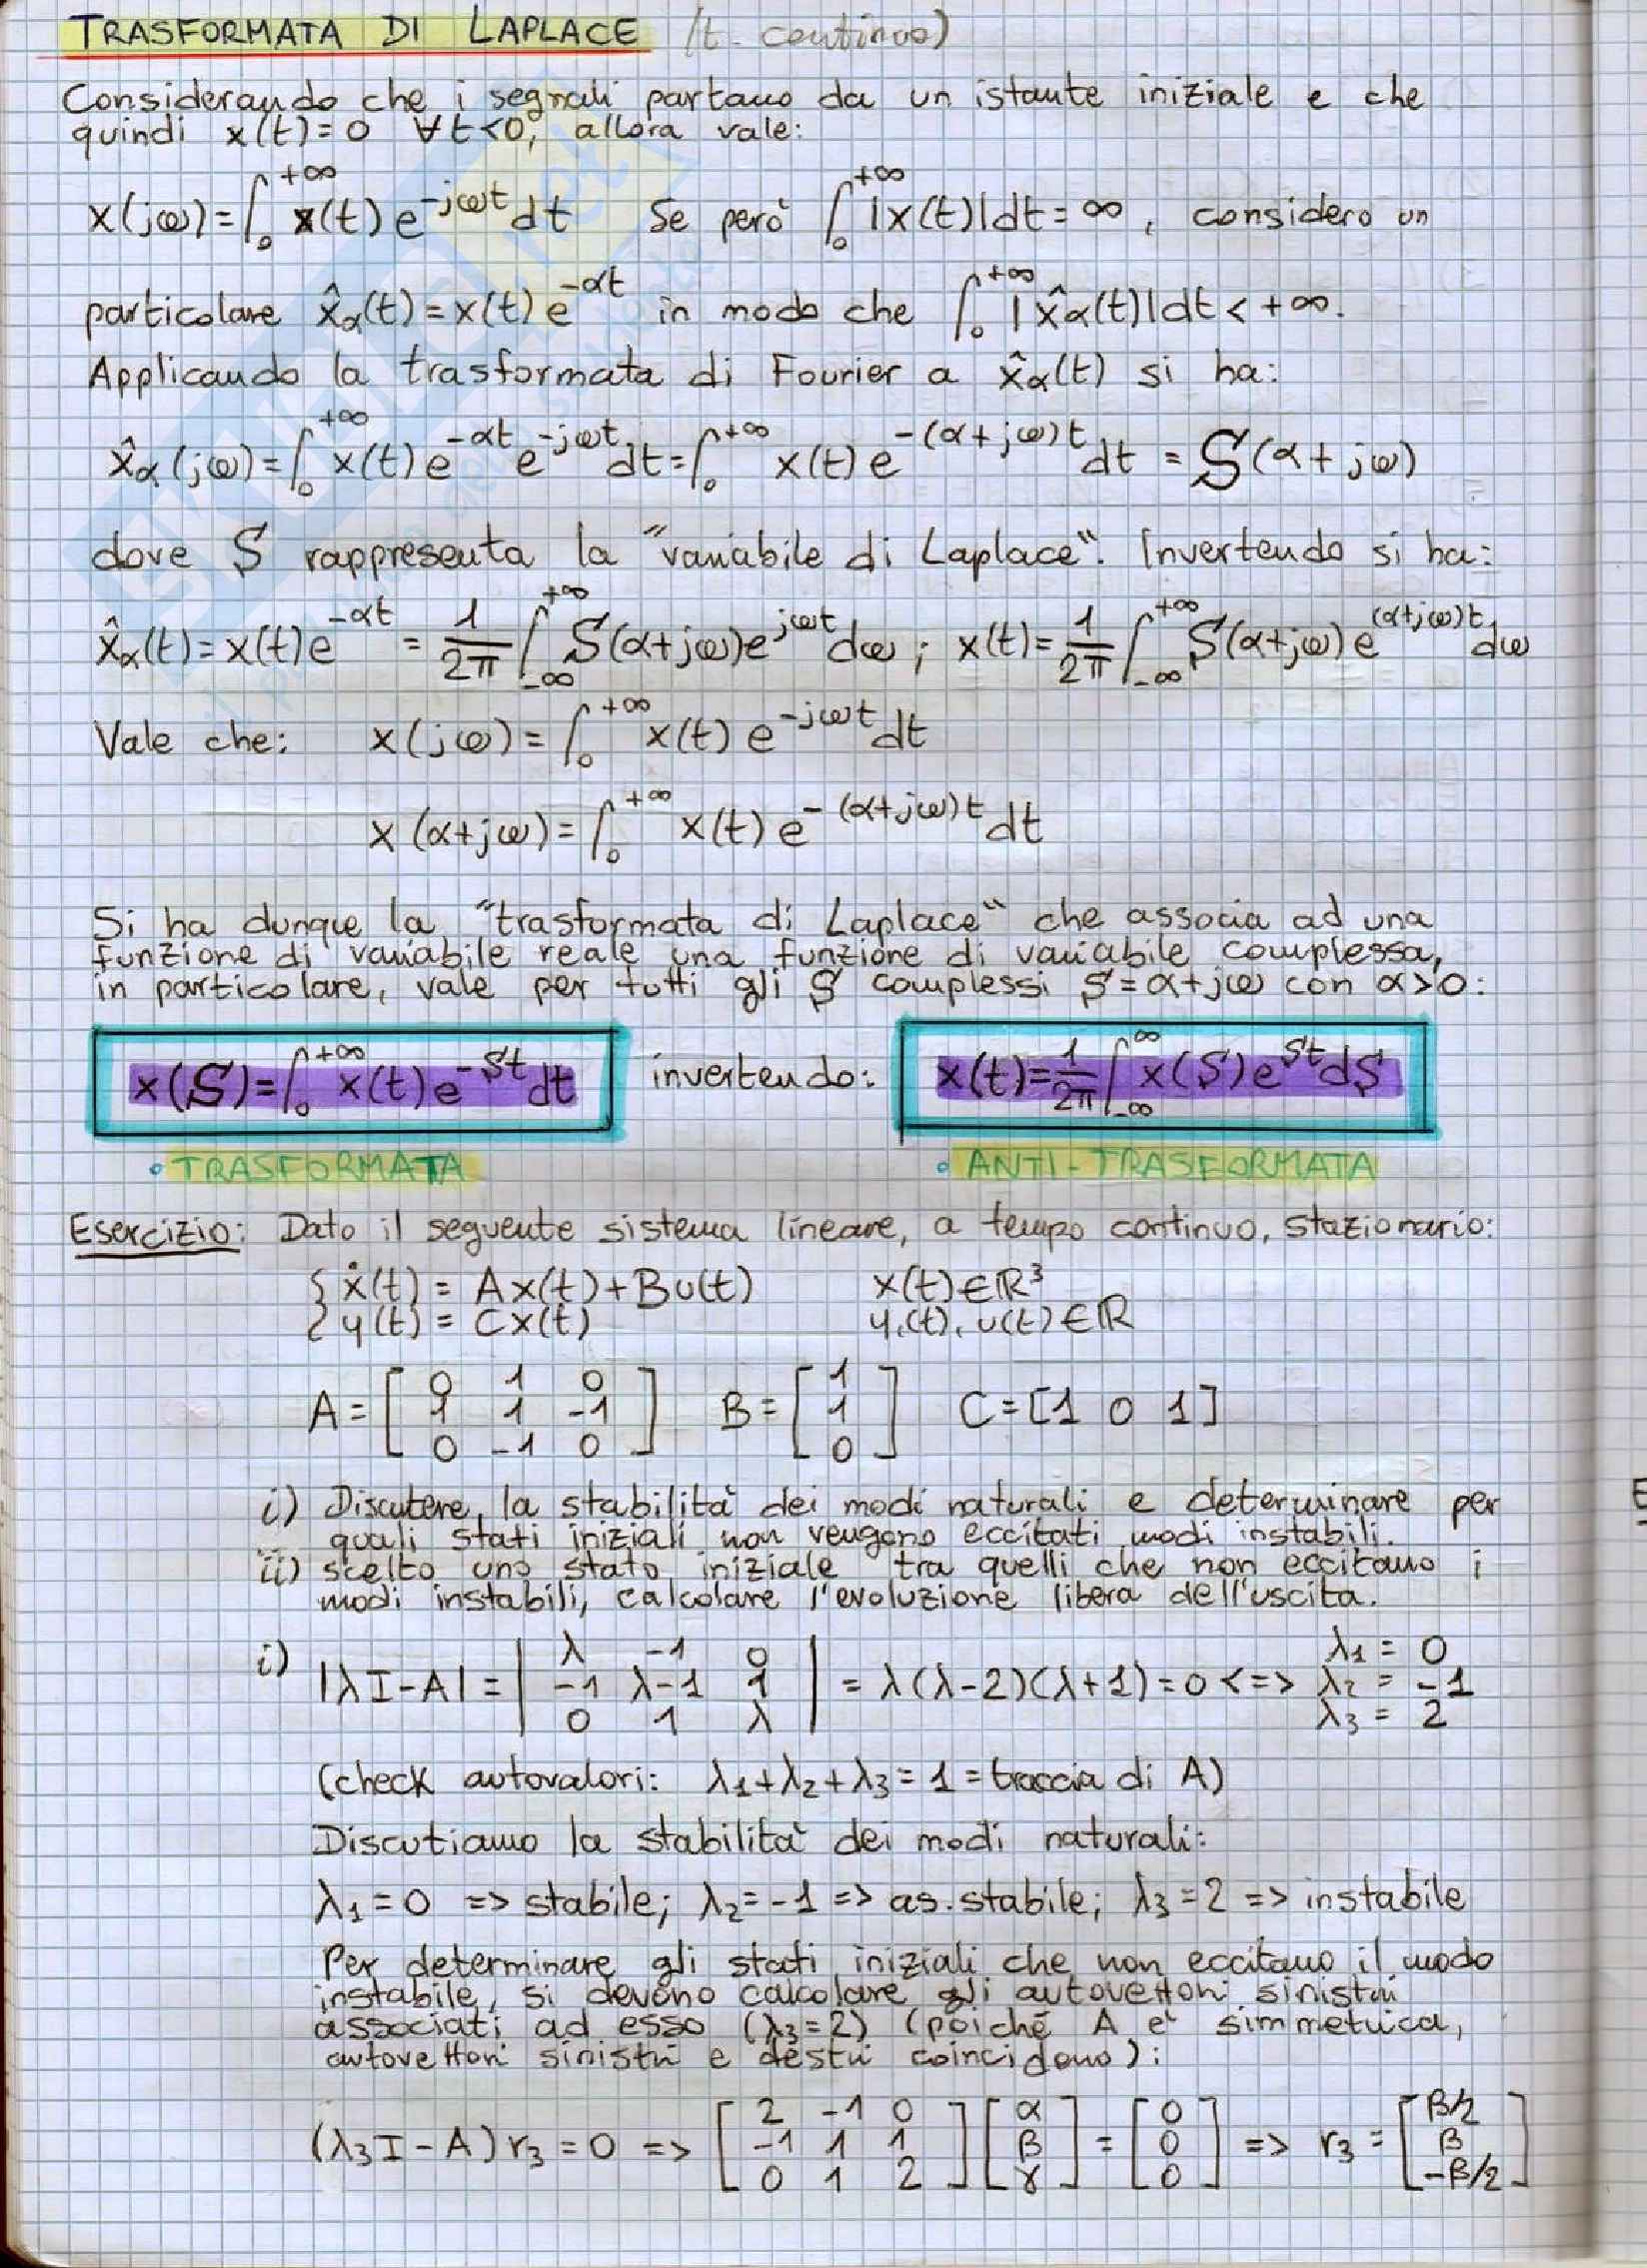 TRASFORMATA DI LAPLACE (t. continuo)
Considerando che i segnali partano da un istante iniziale e che
quindi x(t)=0 ∀t<0, allora vale:
x(jω)=∫₀^{+∞} x(t)e^{-jωt}dt Se però ∫₀^{+∞}|x(t)|dt=∞, considero un
particolare x̂α(t)=x(t)e^{-αt} in modo che ∫₀^{+∞}|x̂α(t)|dt<+∞.
Applicando la trasformata di Fourier a x̂α(t) si ha:
x̂α(jω)=∫₀^{+∞} x(t)e^{-αt}e^{-jωt}dt=∫₀^{+∞} x(t)e^{-(α+jω)t}dt = S(α+jω)
dove S rappresenta la "variabile di Laplace". Invertendo si ha:
x̂α(t)=x(t)e^{-αt} = 1/2π ∫_{-∞}^{+∞} S(α+jω)e^{jωt}dω; x(t)=1/2π ∫_{-∞}^{+∞} S(α+jω)e^{(α+jω)t}dω
Vale che: x(jω)=∫₀^{+∞} x(t)e^{-jωt}dt
x(α+jω)=∫₀^{+∞} x(t)e^{-(α+jω)t}dt
Si ha dunque la "trasformata di Laplace" che associa ad una
funzione di variabile reale una funzione di variabile complessa,
in particolare, vale per tutti gli S complessi S=α+jω con α>0:
x(S)=∫₀^{+∞} x(t)e^{-St}dt invertendo: x(t)=1/2π ∫_{-∞}^{∞} x(S)e^{St}dS
• TRASFORMATA • ANTI-TRASFORMATA
Esercizio: Dato il seguente sistema lineare, a tempo continuo, stazionario:
{ ẋ(t) = Ax(t)+Bu(t) x(t)∈ℝ³
{ y(t) = Cx(t) y(t), u(t)∈ℝ
A=[0 1 0; 1 1 -1; 0 -1 0] B=[1; 1; 0] C=[1 0 1]
i) Discutere la stabilità dei modi naturali e determinare per
quali stati iniziali non vengono eccitati modi instabili.
ii) scelto uno stato iniziale tra quelli che non eccitano i
modi instabili, calcolare l'evoluzione libera dell'uscita.
i) |λI-A|=|λ -1 0; -1 λ-1 1; 0 1 λ| = λ(λ-2)(λ+1)=0 <=> λ₁ = 0 λ₂ = -1 λ₃ = 2
(check autovalori: λ₁+λ₂+λ₃=1=traccia di A)
Discutiamo la stabilità dei modi naturali:
λ₁=0 => stabile; λ₂=-1 => as. stabile; λ₃=2 => instabile
Per determinare gli stati iniziali che non eccitano il modo
instabile, si devono calcolare gli autovettori sinistri
associati ad esso (λ₃=2) (poiché A è simmetrica,
autovettori sinistri e destri coincidono):
(λ₃I-A)r₃=0 => [2 -1 0; -1 1 1; 0 1 2][α; β; γ]=[0; 0; 0] => r₃=[β/2; β; -β/2]